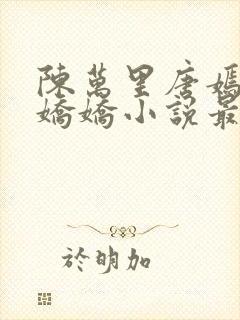 陳萬里唐嫣
嬌嬌小說最
於明加